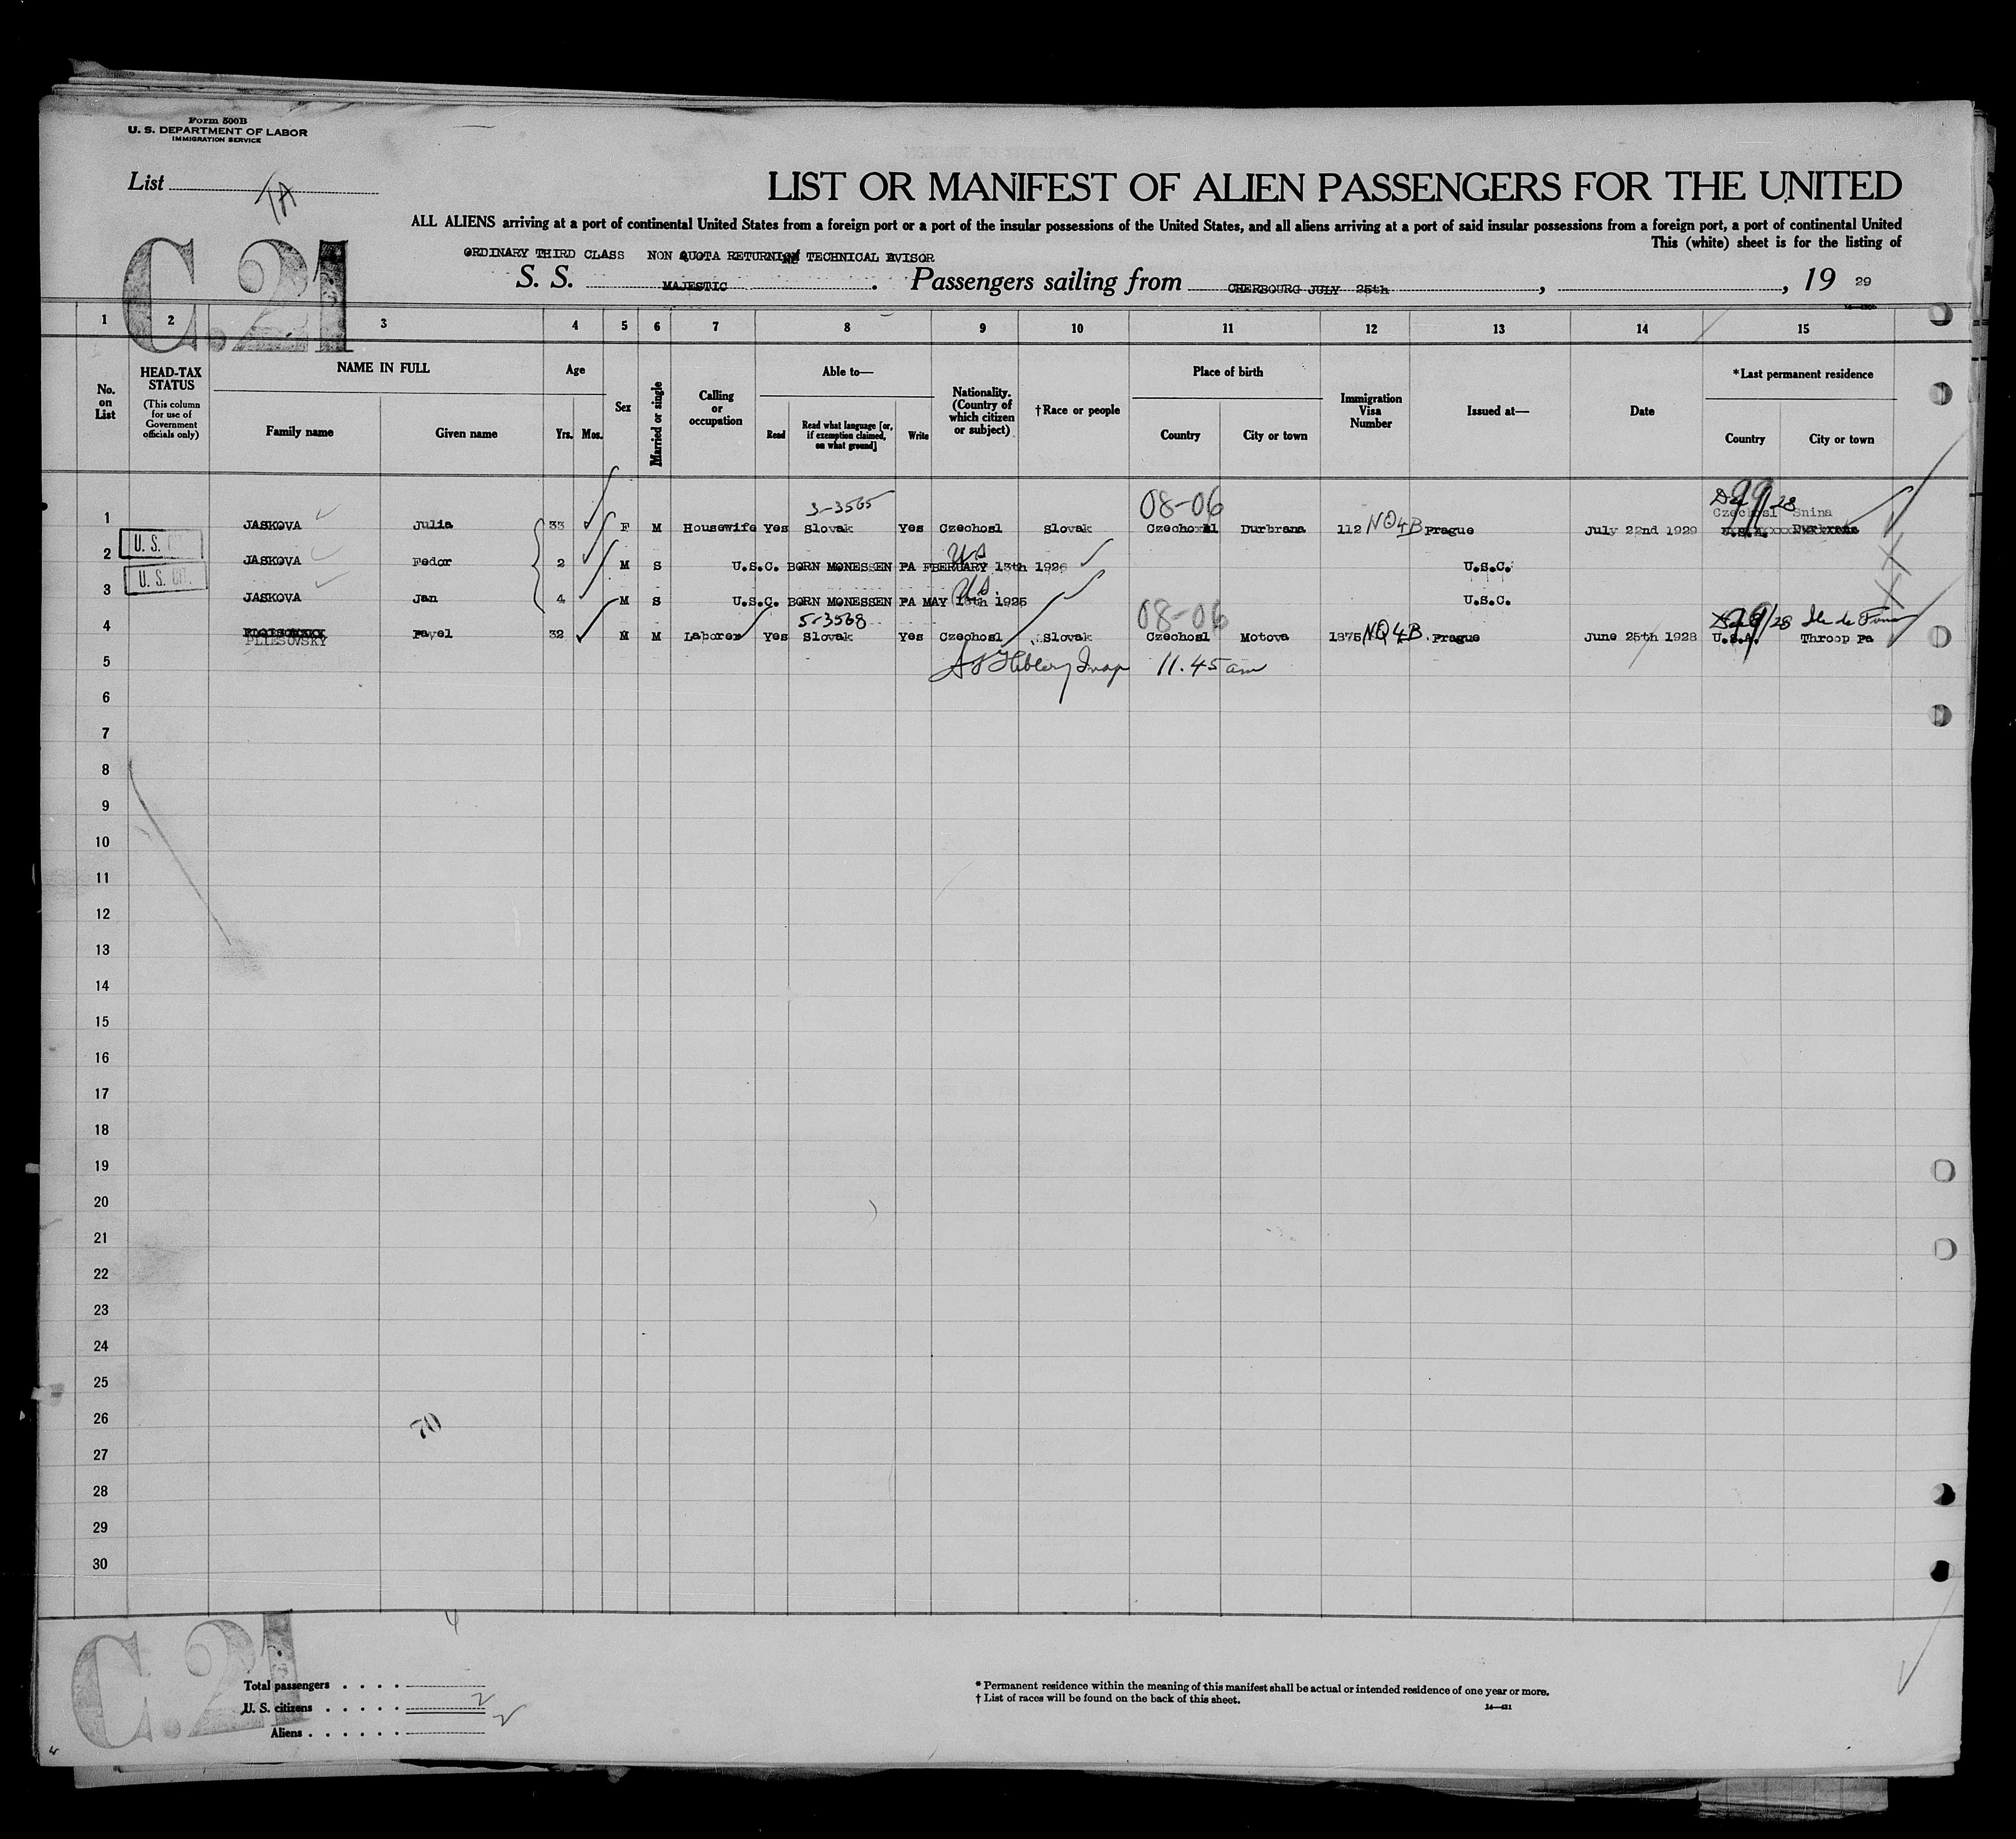 Form 500B
U. S. DEPARTMENT OF LABOR
IMMIGRATION SERVICE
List
C.21
LIST OR MANIFEST OF ALIEN PASSENGERS FOR THE UNITED
ALL ALIENS arriving at a port of continental United States from a foreign port or a port of the insular possessions of the United States, and all aliens arriving at a port of said insular possessions from a foreign port, a port of continental United
This (white) sheet is for the listing of
ORDINARY THIRD CLASS NON QUOTA RETURNING TECHNICAL AVISOR
S. S. MAJESTIC. Passengers sailing from CHERBOURG JULY 25th, , 19 29
1 2 3 4 5 6 7 8 9 10 11 12 13 14 15
No. on List
HEAD-TAX STATUS
(This column for use of Government officials only)
NAME IN FULL
Family name Given name
Age
Yrs. Mos.
Sex
Married or single
Calling or occupation
Able to—
Read Read what language [or, if exemption claimed, on what ground] Write
Nationality. (Country of which citizen or subject)
†Race or people
Place of birth
Country City or town
Immigration Visa Number
Issued at—
Date
*Last permanent residence
Country City or town
3-3565 08-06 28
Czechosl Snina
1 JASKOVA Julia 33 F M Housewife Yes Slovak Yes Czechosl Slovak Czechosl Durbrana 112 NQ4B Prague July 22nd 1929 U.S.A.
U. S. CIT.
US
2 JASKOVA Fedor 2 M S U.S.C. BORN MONESSEN PA FBERUARY 13th 1926 U.S.C.
U. S. CIT.
US
3 JASKOVA Jan 4 M S U.S.C. BORN MONESSEN PA MAY 18th 1925 U.S.C.
5-3568 08-06 28 Ile de France
4 Pavel 32 M M Laborer Yes Slovak Yes Czechosl Slovak Czechosl Motova 1875 NQ4B Prague June 25th 1928 U.S.A. Throop Pa
PLIESOVSKY
5 11.45 am
6
7
8
9
10
11
12
13
14
15
16
17
18
19
20
21
22
23
24
25
26
70
27
28
29
30
4
C.21
Total passengers . . . .
U. S. citizens . . . . . 2
Aliens . . . . . . 2
* Permanent residence within the meaning of this manifest shall be actual or intended residence of one year or more.
† List of races will be found on the back of this sheet.